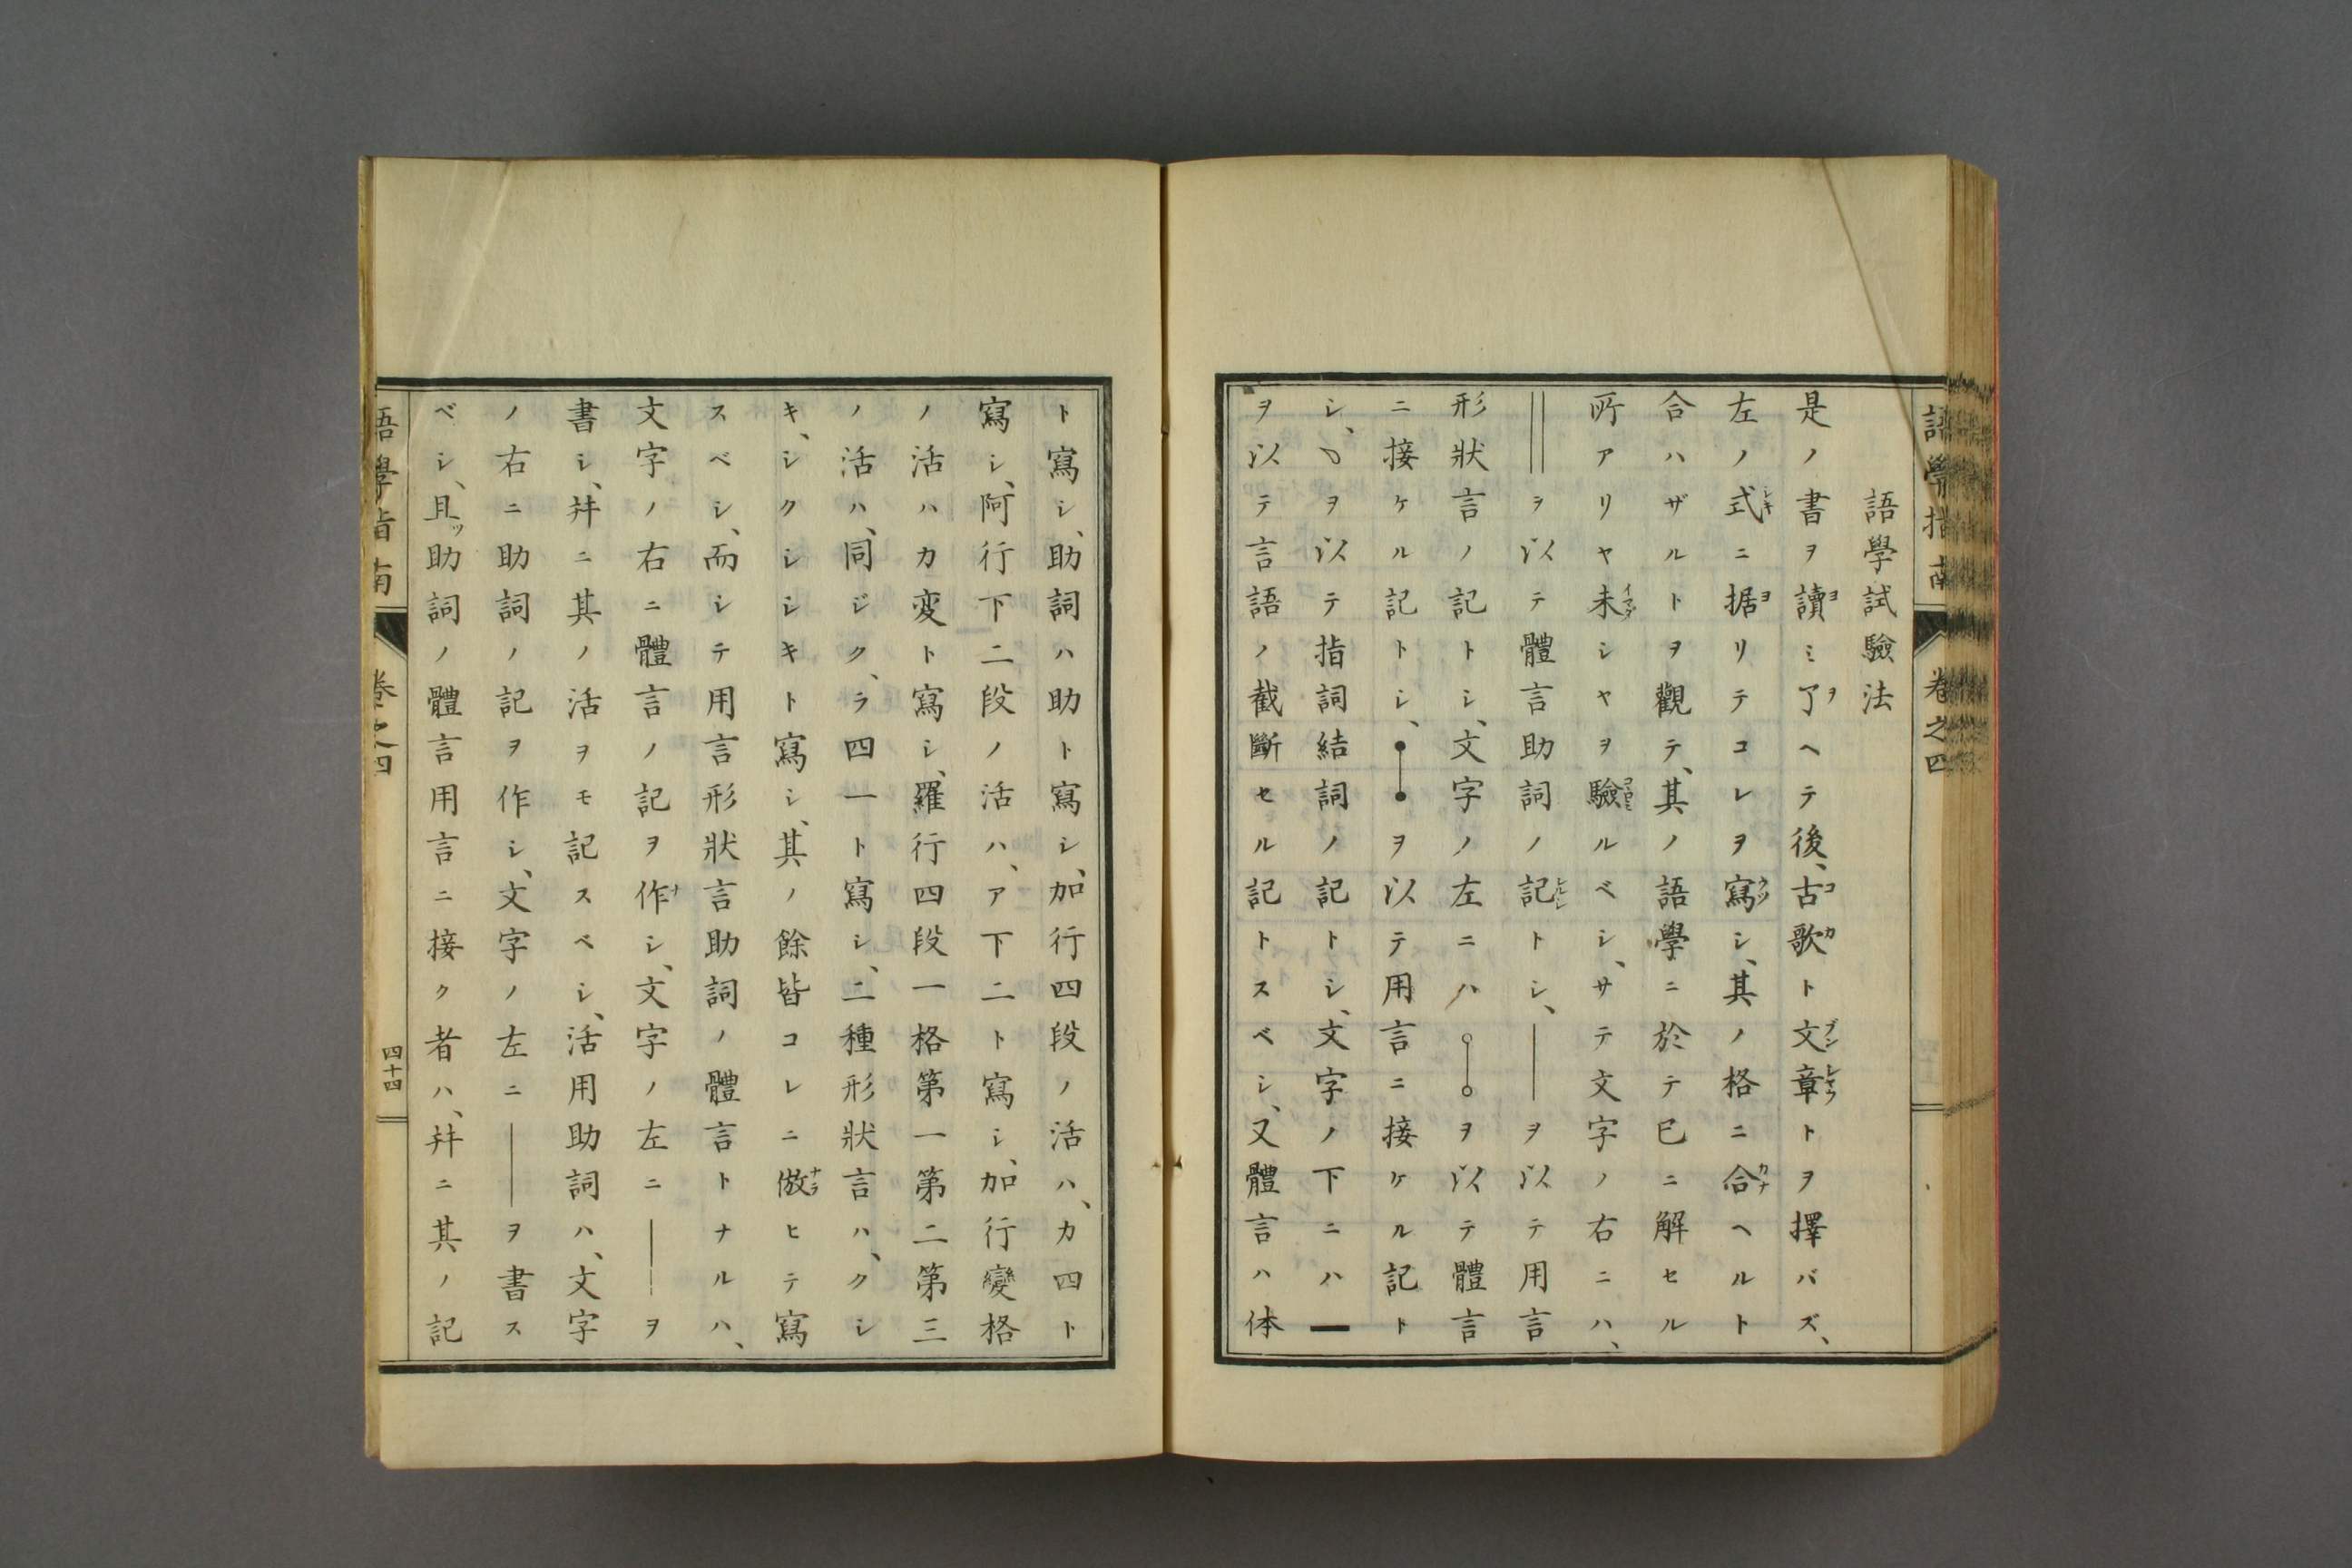 語學指南 卷之四
語學試驗法
是ノ書ヲ讀ミ了ヘテ後、古歌ト文章トヲ擇バズ、
左ノ式ニ据リテコレヲ寫シ、其ノ格ニ合ヘルト
合ハザルトヲ觀テ、其ノ語學ニ於テ已ニ解セル
所アリヤ未シヤヲ驗ルベシ、サテ文字ノ右ニハ、
‖ヲ以テ體言助詞ノ記トシ、│ヲ以テ用言
形狀言ノ記トシ、文字ノ左ニハ○─○ヲ以テ體言
ニ接ケル記トシ、●─●ヲ以テ用言ニ接ケル記ト
シ、\ヲ以テ指詞結詞ノ記トシ、文字ノ下ニハ━
ヲ以テ言語ノ截斷セル記トスベシ、又體言ハ体
ト寫シ、助詞ハ助ト寫シ、加行四段ノ活ハ、カ四ト
寫シ、阿行下二段ノ活ハ、ア下二ト寫シ、加行變格
ノ活ハカ変ト寫シ、羅行四段一格第一第二第三
ノ活ハ、同ジク、ラ四一ト寫シ、二種形狀言ハ、クシ
キ、シクシシキト寫シ、其ノ餘皆コレニ倣ヒテ寫
スベシ、而シテ用言形狀言助詞ノ體言トナルハ、
文字ノ右ニ體言ノ記ヲ作シ、文字ノ左ニ│ヲ
書シ、幷ニ其ノ活ヲモ記スベシ、活用助詞ハ、文字
ノ右ニ助詞ノ記ヲ作シ、文字ノ左ニ│ヲ書ス
ベシ、且ツ助詞ノ體言用言ニ接ク者ハ、幷ニ其ノ記
語學指南 卷之四 四十四